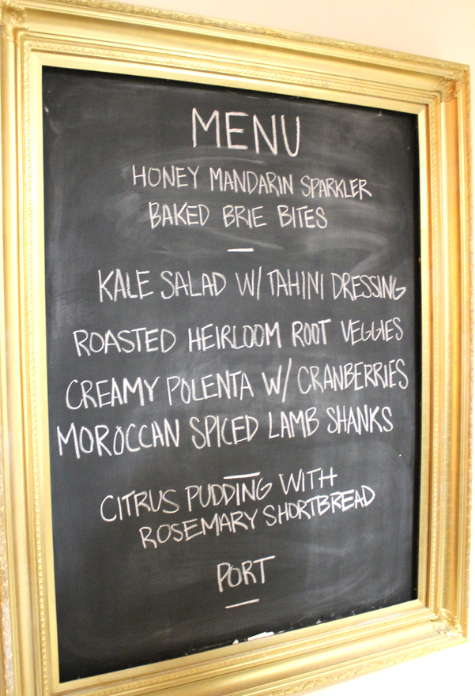 MENU
HONEY MANDARIN SPARKLER
BAKED BRIE BITES
KALE SALAD W/ TAHINI DRESSING
ROASTED HEIRLOOM ROOT VEGGIES
CREAMY POLENTA W/ CRANBERRIES
MOROCCAN SPICED LAMB SHANKS
CITRUS PUDDING WITH
ROSEMARY SHORTBREAD
PORT